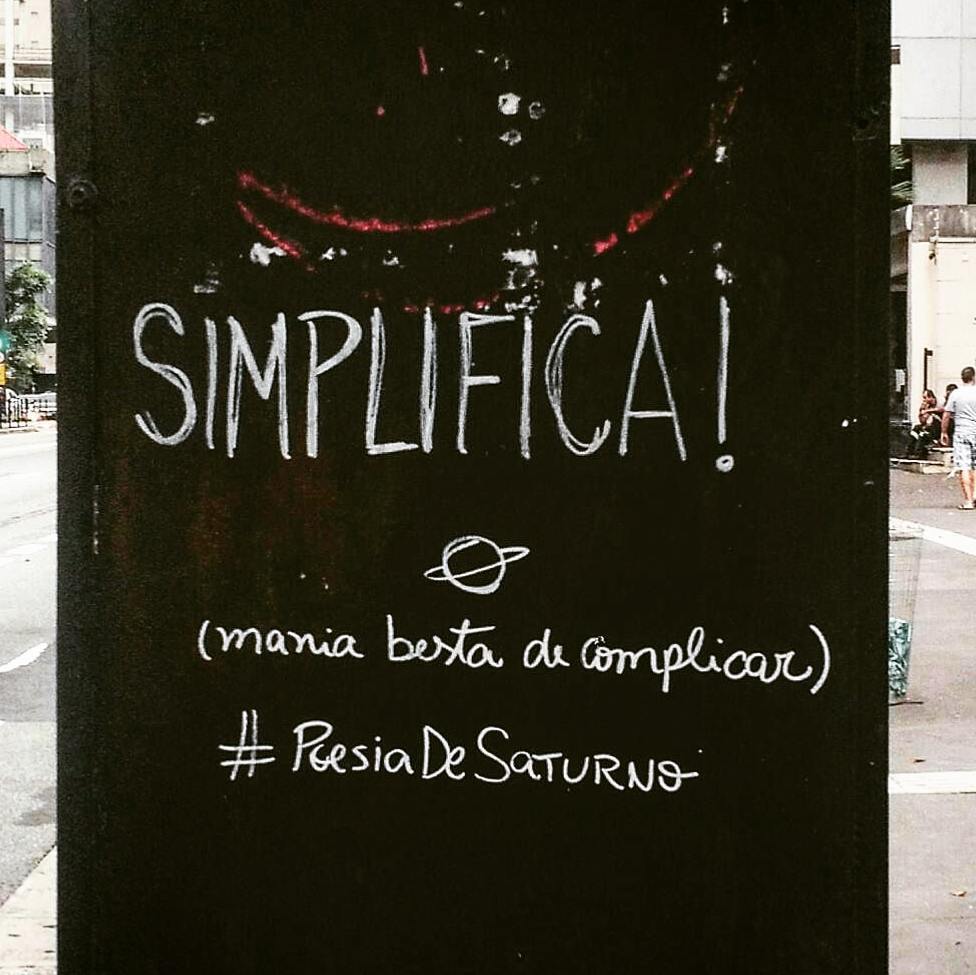 SIMPLIFICA!
(mania besta de complicar)
#PoesiaDeSaTURNO